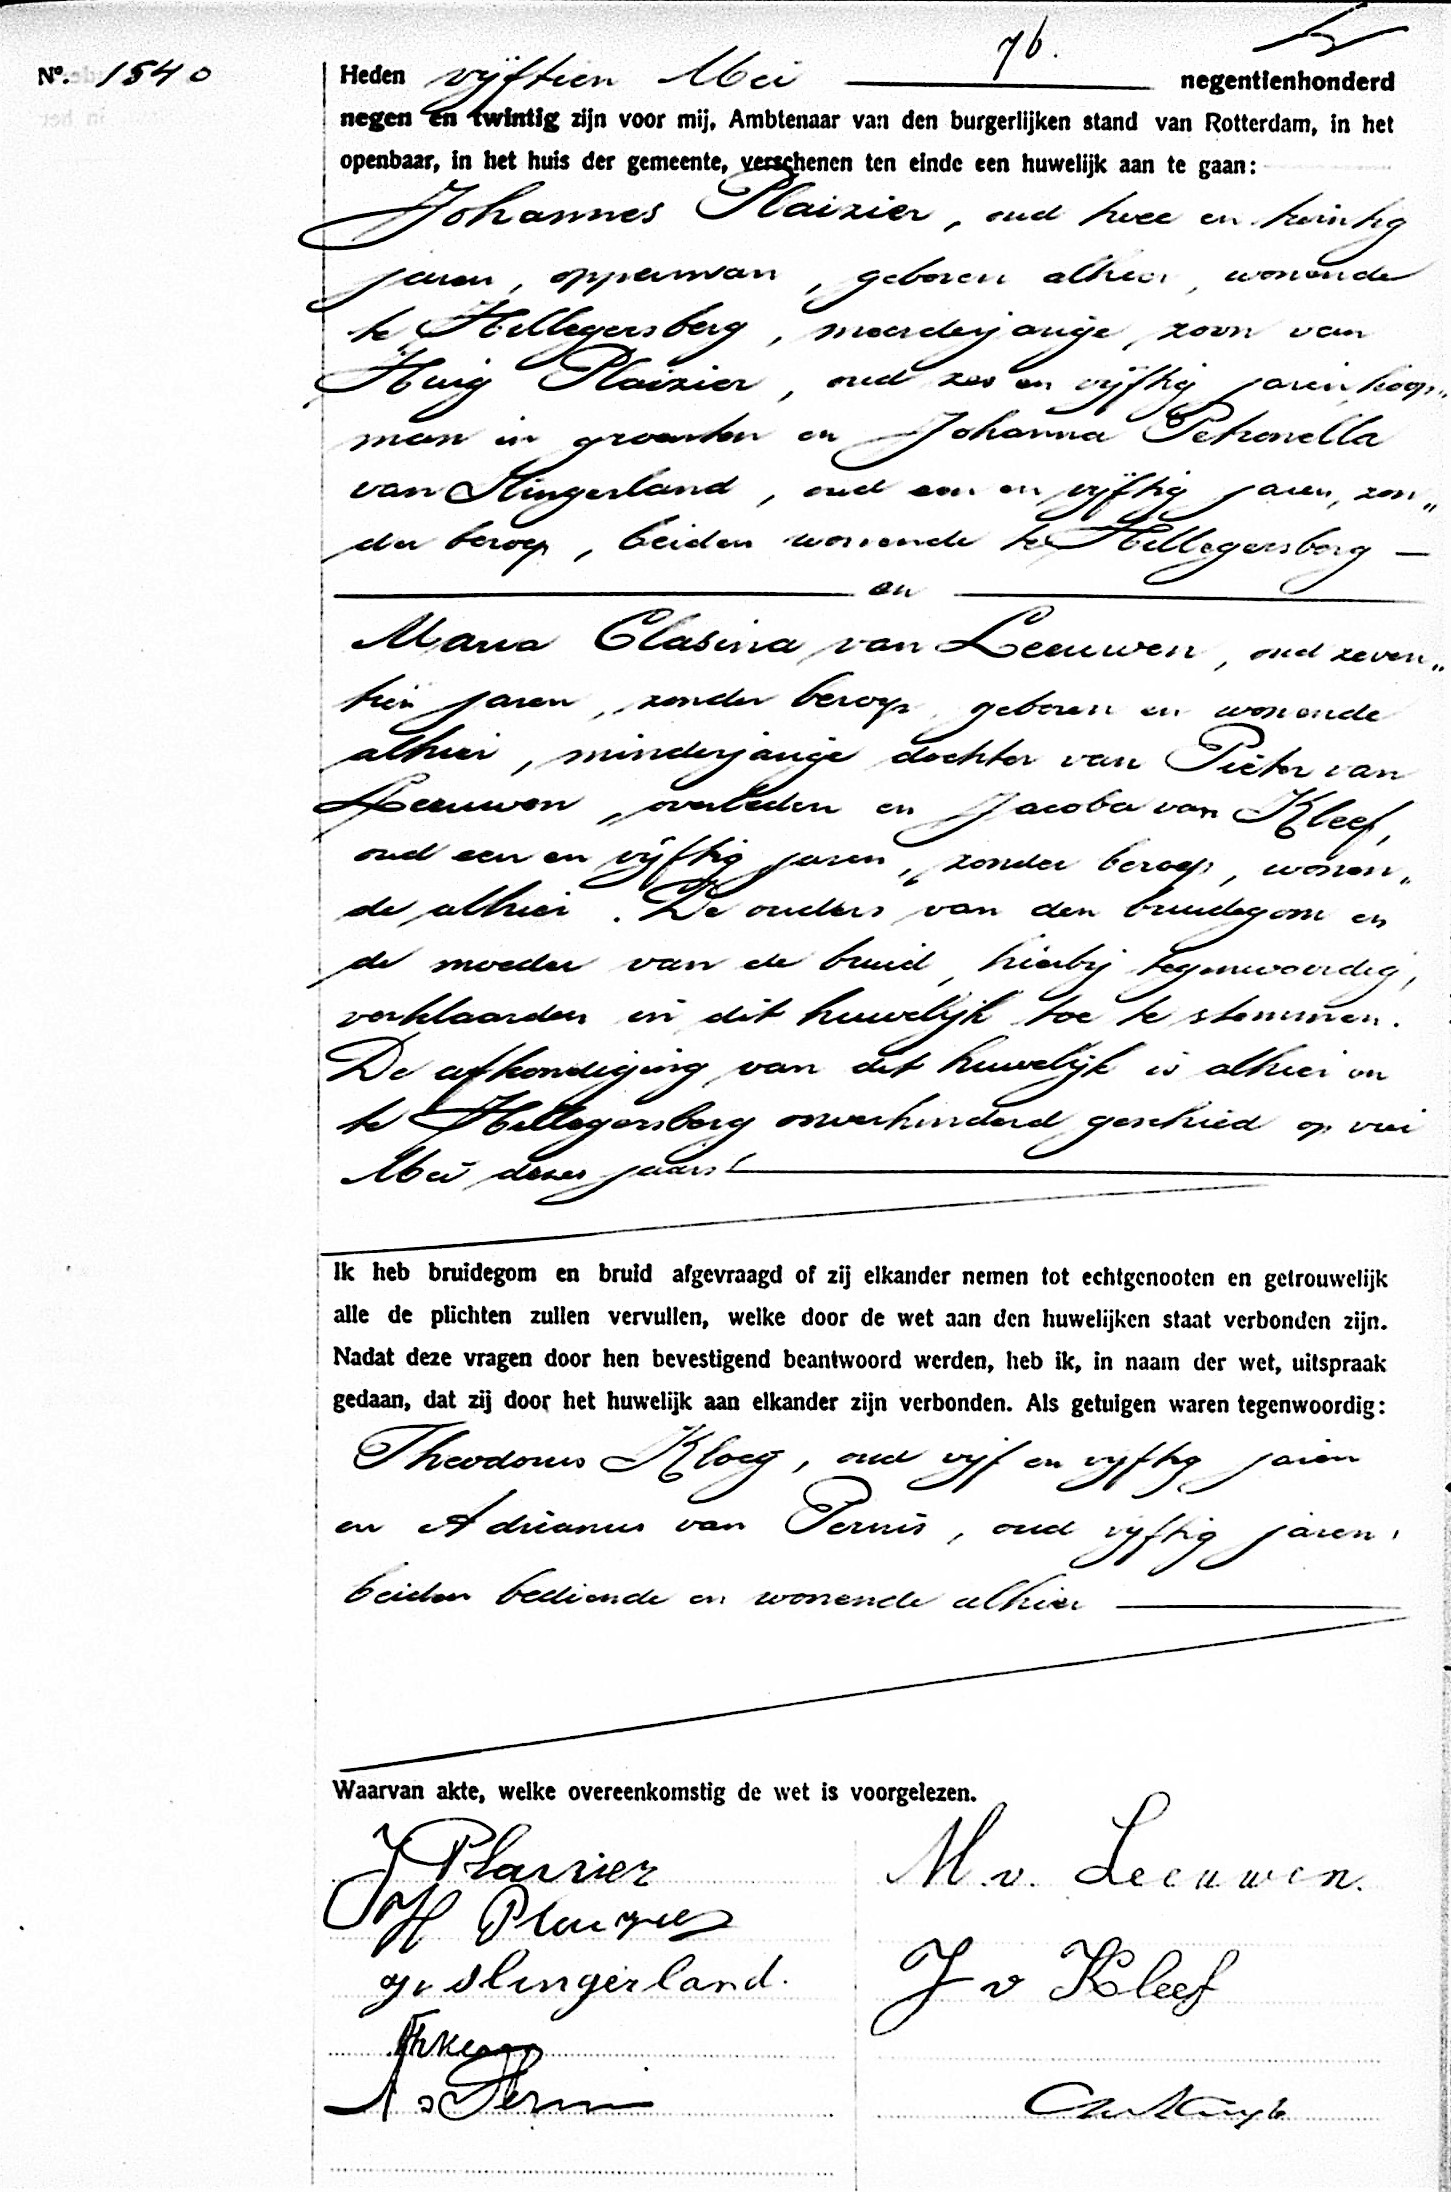 76.
No. 1540
Heden vijftien Mei negentienhonderd
negen en twintig zijn voor mij, Ambtenaar van den burgerlijken stand van Rotterdam, in het
openbaar, in het huis der gemeente, verschenen ten einde een huwelijk aan te gaan:
Johannes Plaizier, oud twee en twintig
jaren, opperman, geboren alhier, wonende
te Hillegersberg, meerderjarige zoon van
Huig Plaizier, oud zes en vijftig jaren, koop„
man in groenten en Johanna Petronella
van Slingerland, oud een en vijftig jaren, zon„
der beroep, beiden wonende te Hillegersberg —
en
Maria Clasina van Leeuwen, oud zeven„
tien jaren, zonder beroep, geboren en wonende
alhier, minderjarige dochter van Pieter van
Leeuwen, overleden en Jacoba van Kleef,
oud een en vijftig jaren, zonder beroep, wonen„
de alhier. De ouders van den bruidegom en
de moeder van de bruid, hierbij tegenwoordig,
verklaarden in dit huwelijk toe te stemmen.
De afkondiging van dit huwelijk is alhier en
te Hillegersberg onverhinderd geschied op vier
Mei dezes jaars!
Ik heb bruidegom en bruid afgevraagd of zij elkander nemen tot echtgenooten en getrouwelijk
alle de plichten zullen vervullen, welke door de wet aan den huwelijken staat verbonden zijn.
Nadat deze vragen door hen bevestigend beantwoord werden, heb ik, in naam der wet, uitspraak
gedaan, dat zij door het huwelijk aan elkander zijn verbonden. Als getuigen waren tegenwoordig:
Theodorus Kloeg, oud vijf en vijftig jaren
en Adrianus van Pernis, oud vijftig jaren,
beiden bediende en wonende alhier
Waarvan akte, welke overeenkomstig de wet is voorgelezen.
J Plaizier
M. v. Leeuwen.
H Plaizier
J v Kleef
v Slingerland.